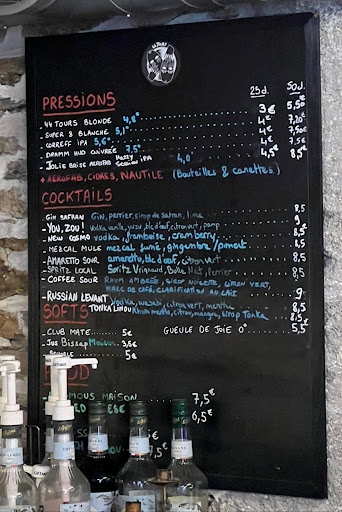 PRESSIONS
25d. 50d.
- 44 TOURS BLONDE 4,8° 3€ 5,5€
- SUPER 8 BLANCHE 5,1° 4€ 7,20€
- CORREFF IPA 5,6° 4€ 7,50€
- DRAMM HUD CUIVRÉE 7,5° 4€ 7,5€
- JOLIE BRISE AEROFAB HAZZY SESSION IPA 4,0° 4,5€ 8,5€
+ AEROFAB, CIDRES, NAUTILE (Bouteilles & canettes)
COCKTAILS
- GIN SAFRAN GIN, perrier, sirop de safran, lime 8,5
- YOU, ZOU! Vodka vanille, yuzu, blc d'œuf, citron vert, pamp 9
- NEW COSMO vodka, framboise, cramberry 8,5
- MEZCAL MULE mezcal fumé, gingembre/piment 8,5
- AMARETTO SOUR amaretto, blc d'œuf, citron vert 8,5
- SPRITZ LOCAL Spritz Vrignaud, Perrier 8,5
- COFFEE SOUR RHUM AMBRÉE, SIROP NOISETTE, CITRON VERT, MARC DE CAFÉ, CLARIFICATION AU LAIT 9
- RUSSIAN LEVANT Vodka, wasabi, citron vert, menthe 8,5
TONKA LINOU Rhum, menthe, citron, mangue, sirop Tonka 8,5
SOFTS
- CLUB MATE 5€
GUEULE DE JOIE 0° 5,5
- JUS BISSAP Maison 3,5€
5€
MAISON 7,5€
6,5€